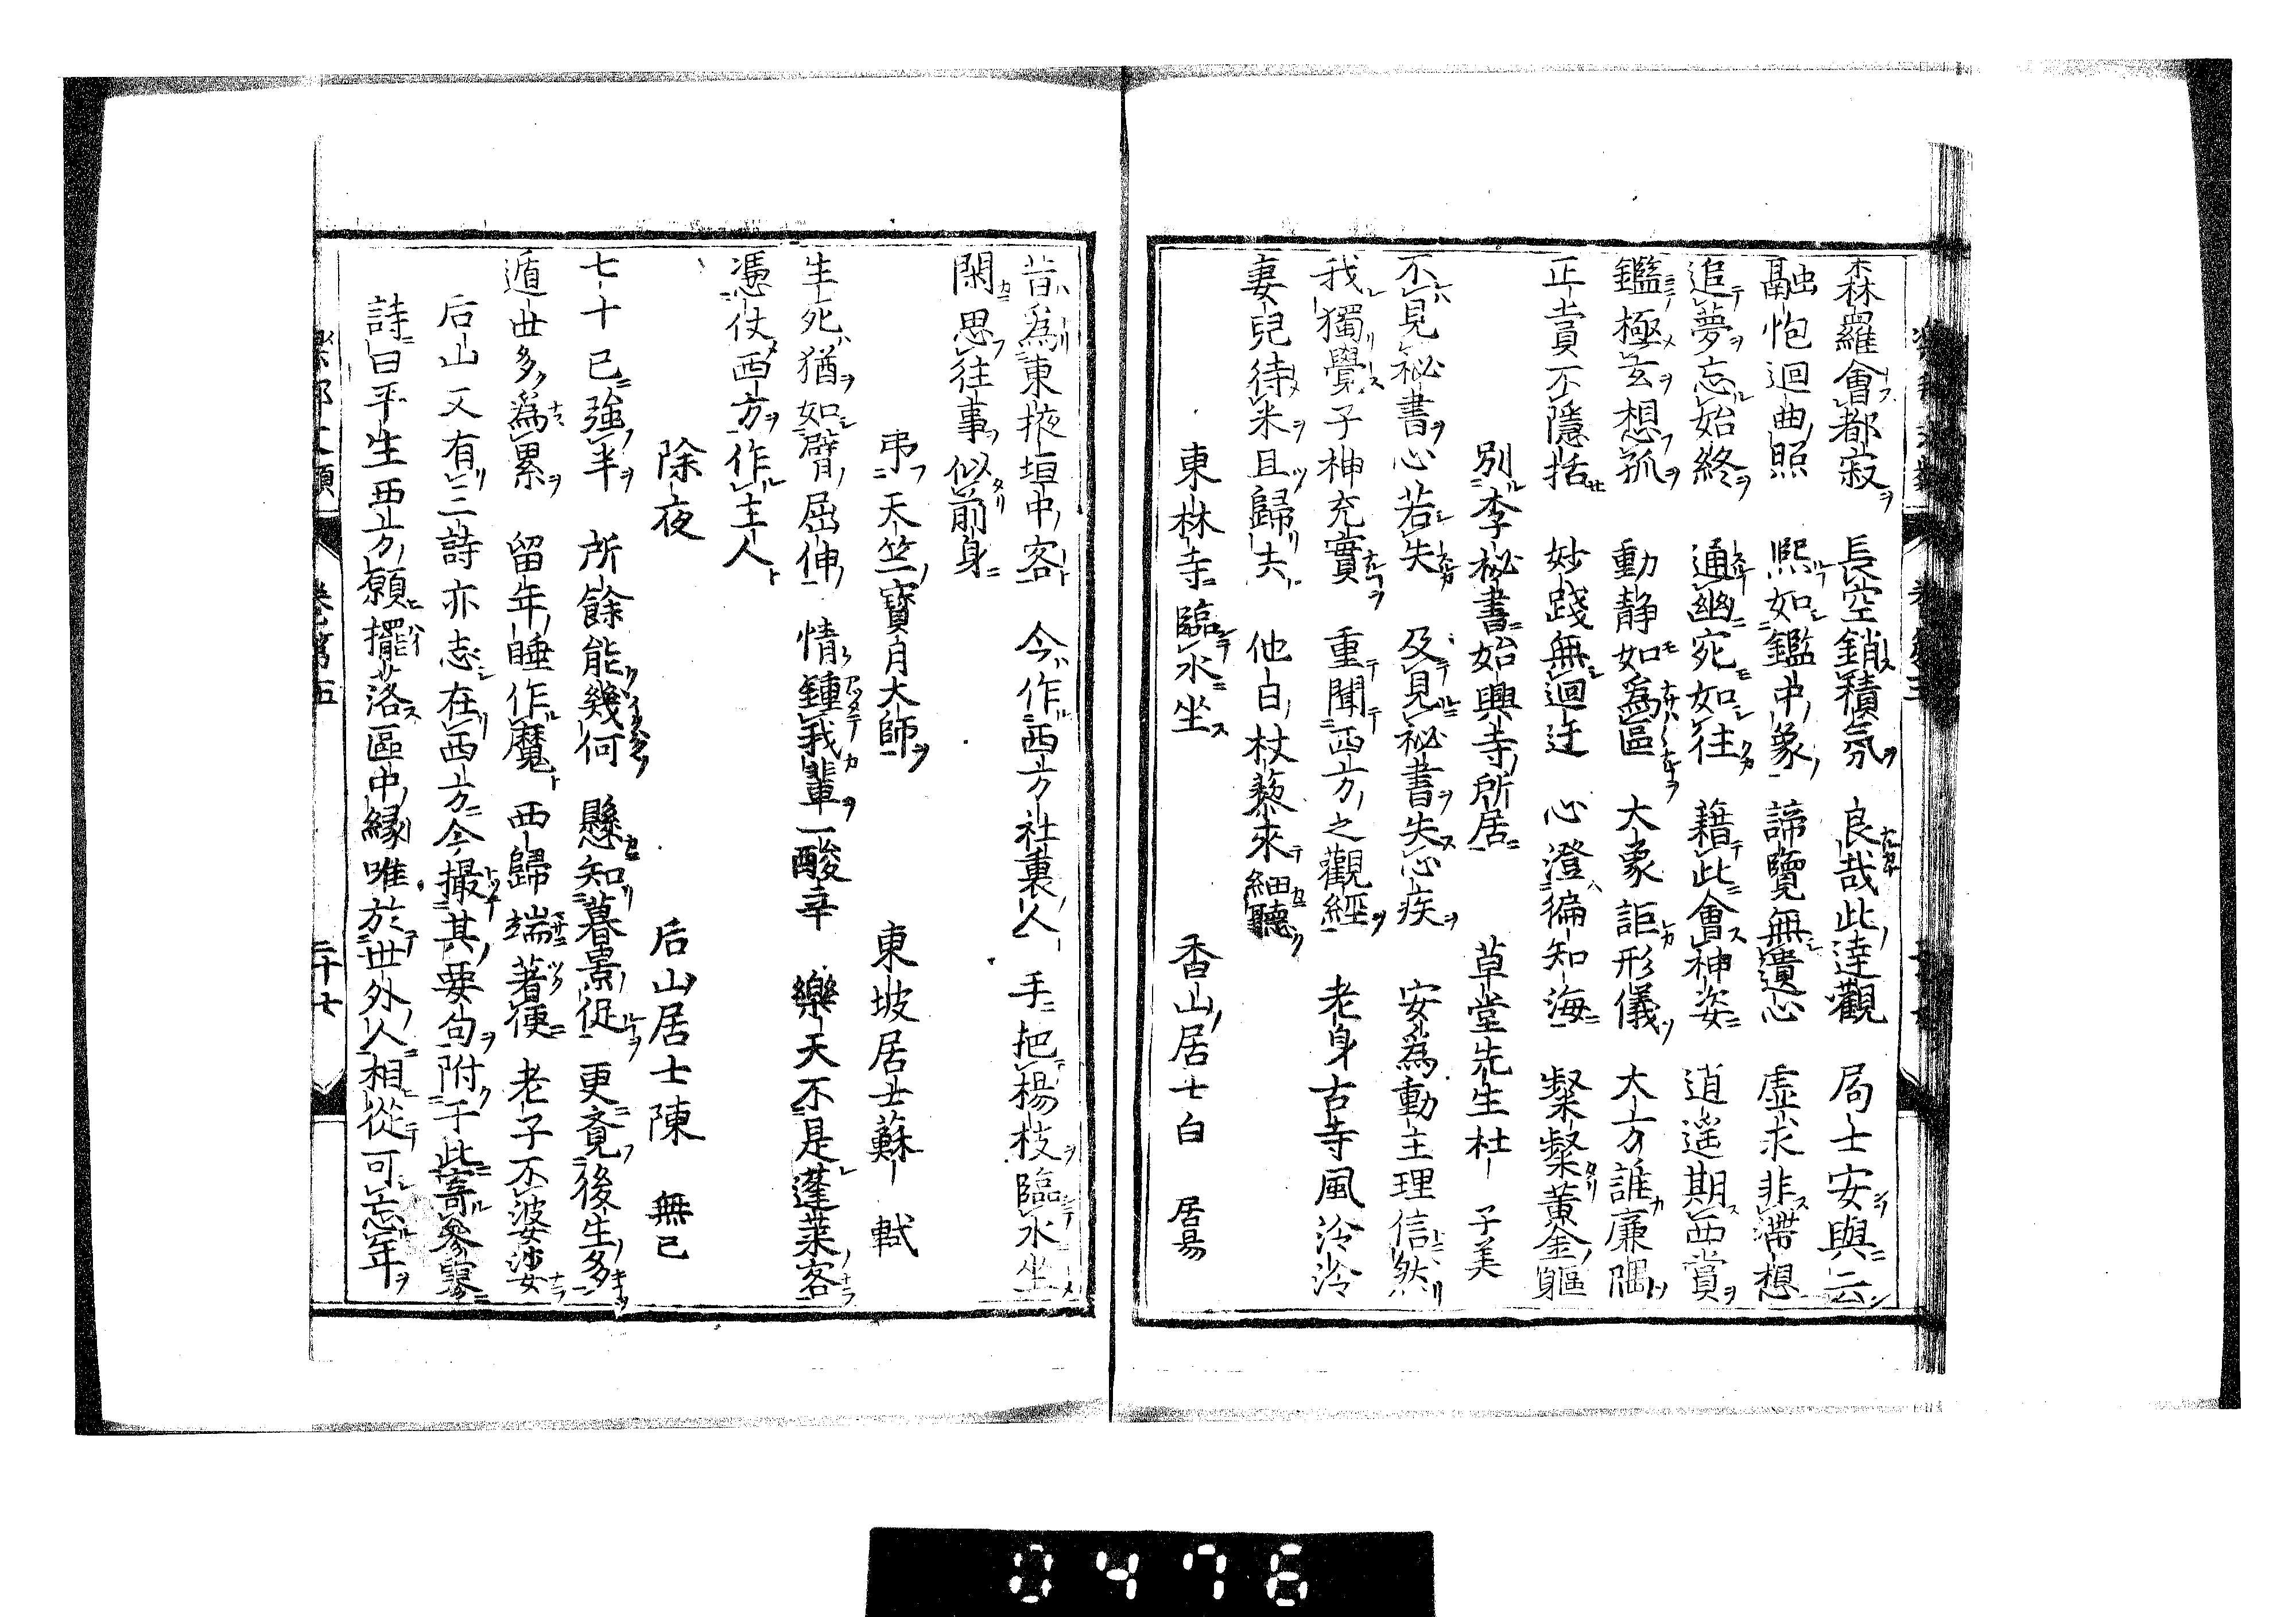 森羅會都寂　長空銷積氛　良哉此達觀　局士安與云
融怉迴曲照　熈如鑑中象　諦覽無遺心　虚求非滯想
追夢忘始終　通幽宛如往　藉此會神姿　逍遥期西賞
鑑極玄想孤　動静如爲區　大象詎形儀　大方誰廉隅
正士員不隱括　妙踐無迴迂　心澄徧知海　粲粲黄金軀
別李秘書始興寺所居　草堂先生杜　子美
不見祕書心若失　及見祕書失心疾　安爲動主理信然
我獨覺子神充實　重聞西方之觀經　老身古寺風泠泠
妻兒待米且歸去　他日杖藜來細聽
東林寺臨水坐　香山居士白　居易
昔爲東掖垣中客　今作西方社裏人　手把楊枝臨水坐
閑思往事似前身
弔天竺寶月大師　東坡居士蘇　軾
生死猶如臂屈伸　情鍾我輩一酸辛　樂天不是蓬莱客
憑仗西方作主人
除夜　后山居士陳　無已
七十已強半　所餘能幾何　懸知暮景促　更覺後生多
遁世多爲累　留年睡作魔　西歸端著便　老子不婆娑
后山又有三詩亦志在西方今撮其要句附于此寄參寥
詩曰平生西方願擺落區中縁唯於世外人相從可忘年
樂邦文類　卷第五　二十七